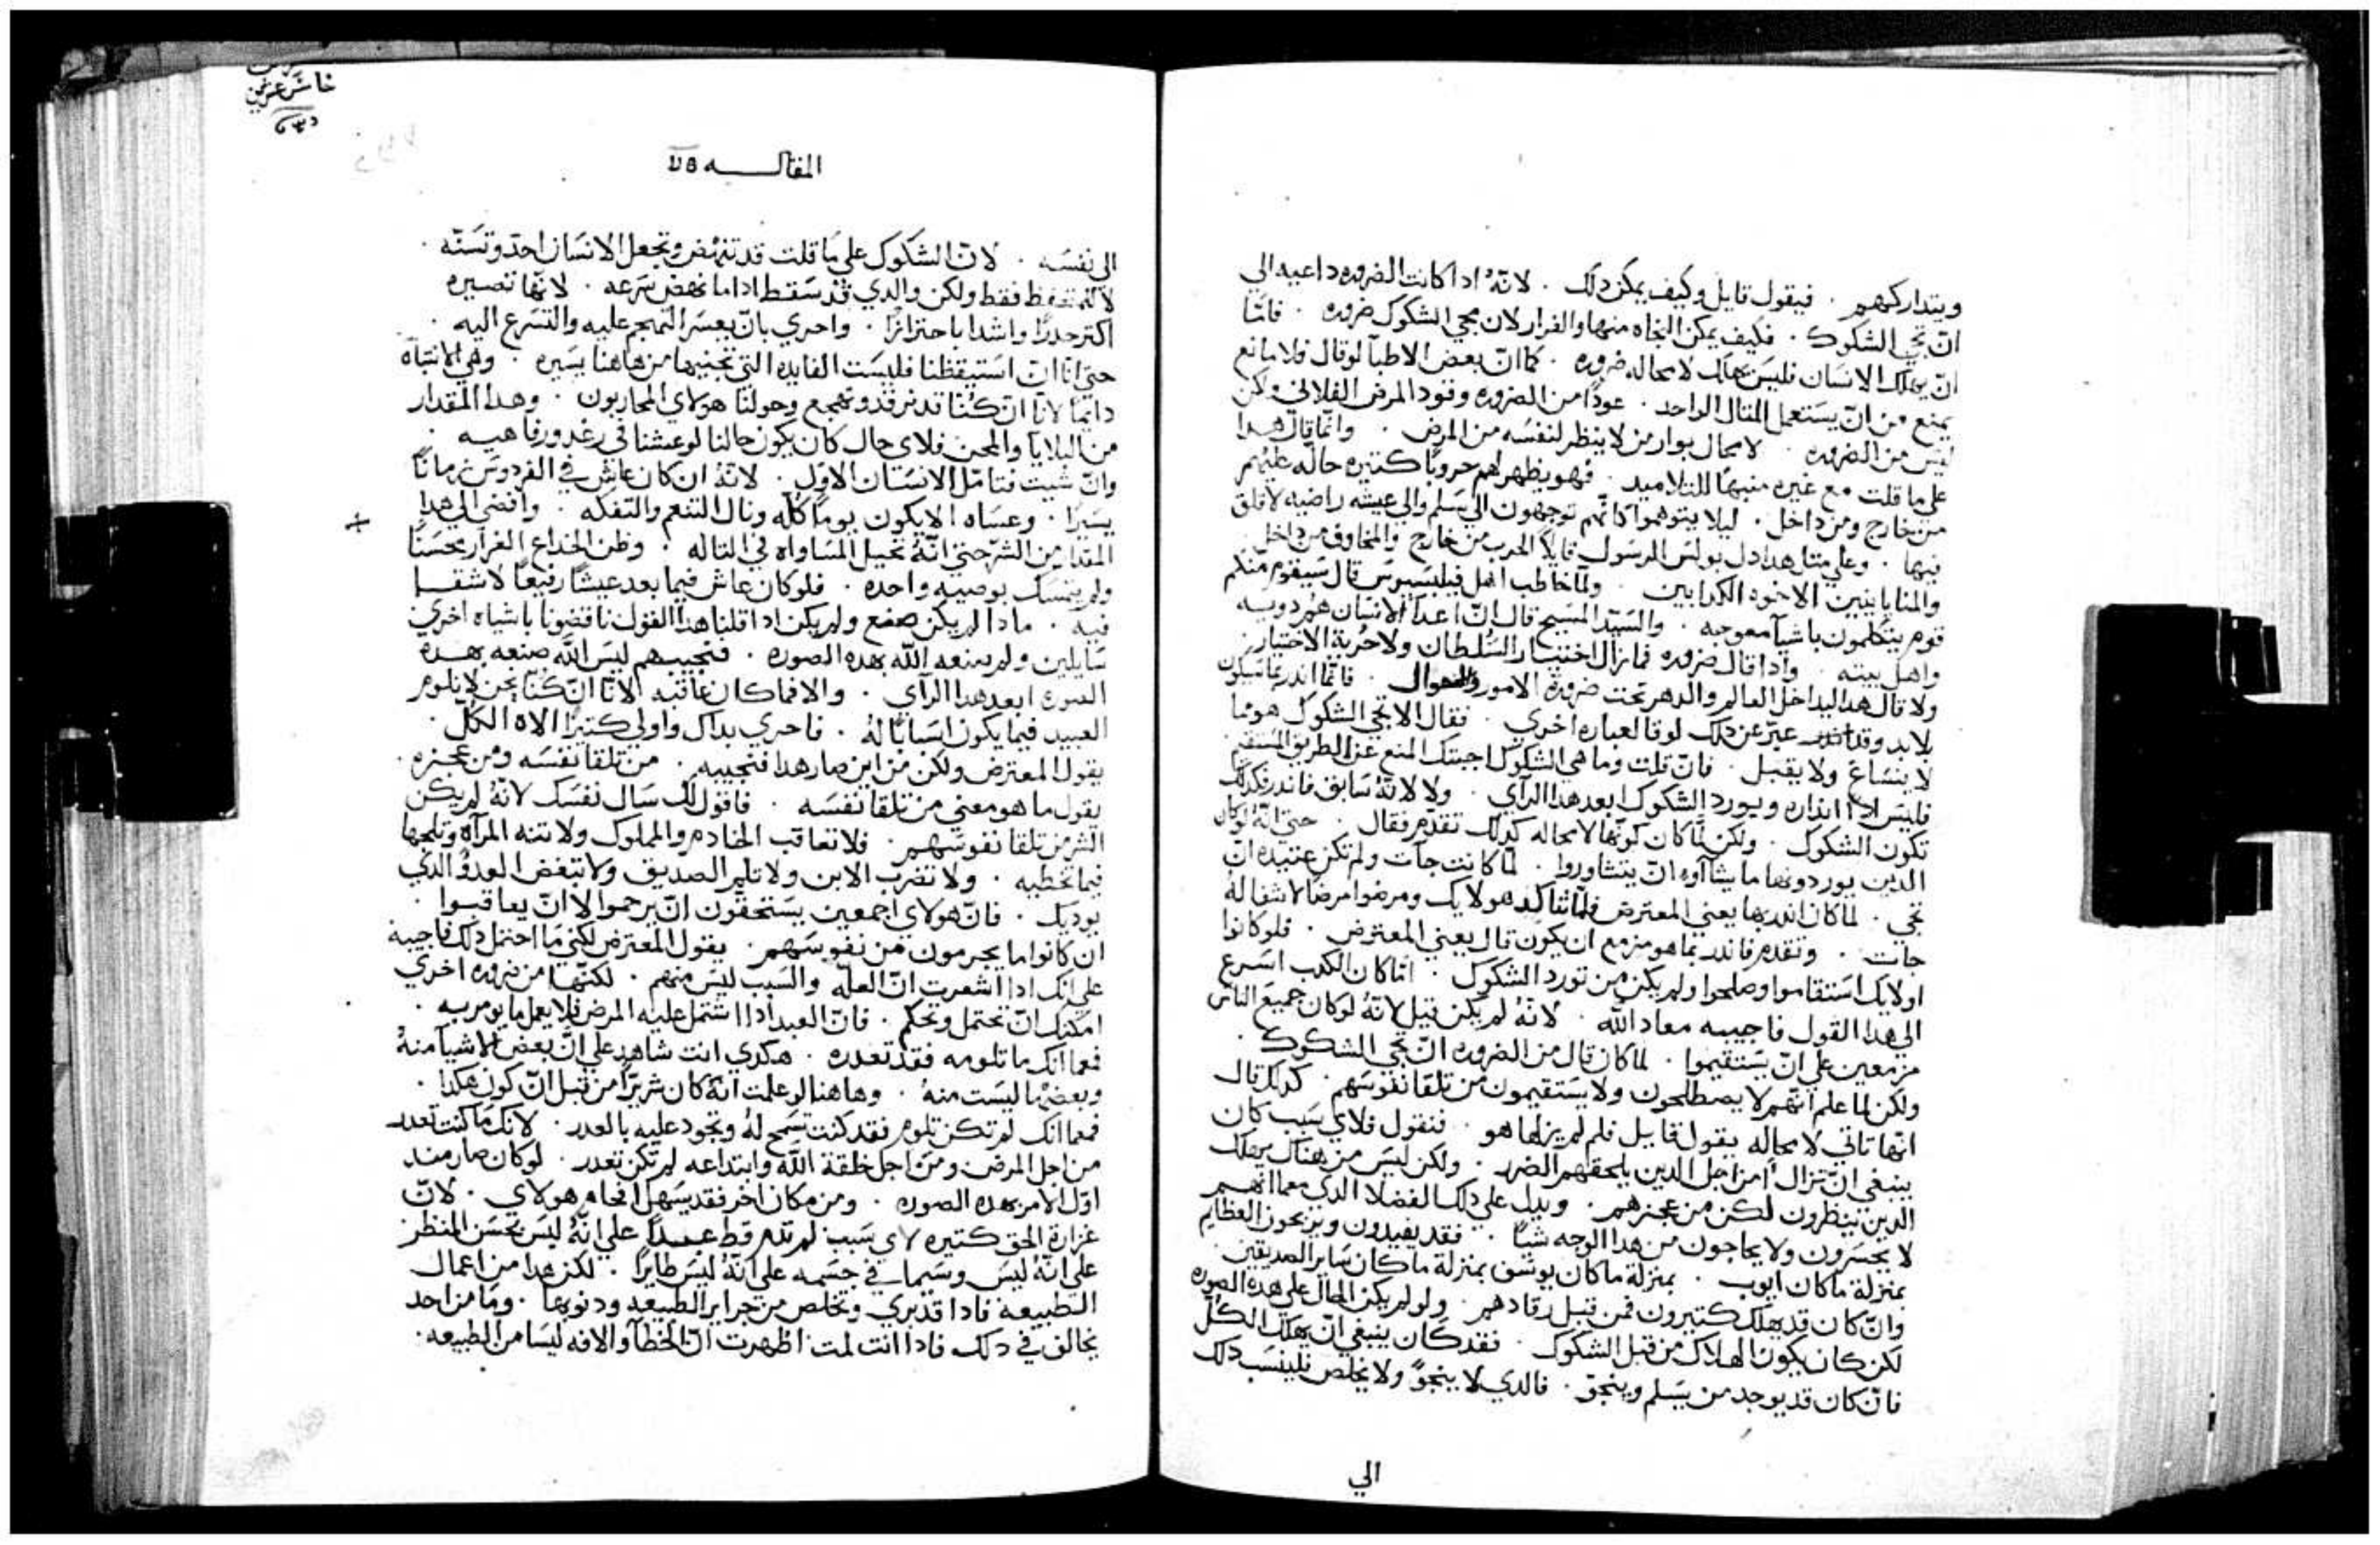 ويتداركهم . فيقول قايل وكيف يمكن دلك . لانّهُ ادا كانت الضروره داعيه الى
انّ تجي الشكوك . فكيف يمكن النجاه منها والفرار لان مجي الشكوك ضروره . فامّا
انّ يهلك الانسان فليس يهلك لا محاله ضروره . كما انّ بعض الاطبآ لوقال فلا مانع
يمنع من انّ يستعمل المتال الواحد . عودًا من الضروره وفود المرض الفلاني ولكن
ليس من الضروره . لا محال بوار من لا ينظر لنفسه من المرض . وانّما قال هدا
على ما قلت مع غيره منبهًا للتلاميد . فهو يظهر لهم حروبًا كتيره حاله عليهم
من خارج ومن داخل . ليلا يتوهموا كانّهم توجهون الى سلم والى عيشه راضيه لا قلق
فيها . وعلى متل هدا دل بولس الرسول قايلًا الحرب من خارج والمخاوف من داخل
والمنايا بنين الاخوه الكدابين . ولمّا خاطب اهل فيلبسيوس قال سيقوم منكم
قوم يتكلمون باشيآ معوجه . والسيّد المسيح قال انّ اعدآ الانسان هم دويه
واهل بيته . وادا قال ضروره فما زال اختيار السلطان ولا حرية الاختيار
ولا قال هدا ليداخل العالم والدهر تحت ضرورة الامور والاحوال . فانّما اندر بما سيكون
لا بد وقد عبّر عن دلك لوقا لعباره اخري . فقال الا تجي الشكوك هو مما
لا ينساغ ولا يقبل . فانّ قلت وما هي الشكوك اجبتك المنع عن الطريق المستقيم
فليس ادا انداره ويورد الشكوك ابعد هدا الرآي . ولا لانّهُ سابق فاندر فكدلك
تكون الشكوك . ولكن لمّا كان كونها لا محاله كدلك تقدّم فقال . حتي انّهُ لو كان
الدين يوردونها ما يشاآوه انّ يتشاوروا . لمّا كانت جآت ولم تكن عتيده انّ
تجي . لما كان اندر بها يعني المعترض فلمّا تفاكد هولايك ومرضوا مرضًا لا شفا لهُ
جات . وتقدم فاندر بما هو مزمع ان يكون قال يعني المعترض . فلو كانوا
اولايك استقاموا وصلحوا ولم يكن من تورد الشكوك . امّا كان الكدب اسرع
الى هدا القول فاجيبه معاد الله . لانّهُ لم يكن قيل لانّهُ لو كان جميع الناس
مزمعين على انّ يستقيموا . لما كان قال من الضروره انّ تجي الشكوك .
ولكن لما علم انّهم لا يصطلحون ولا يستقيمون من تلقا نفوسهم . كدلك قال
انّها تاتي لا محاله يقول قايل فلم لم يزلها هو . فنقول فلاي سبب كان
ينبغي انّ تزال امن اجل الدين يلحقهم الضرر . ولكن ليس من هناك يهلك
الدين ينضرون لكن من عجزهم . ويدل على دلك الفضلا الدي معما انهم
لا يخسرون ولا يحاجون من هدا الوجه شيًا . فقد يفيدون ويربحون العظايم
بمنزلة ما كان ايوب . بمنزلة ما كان يوسف بمنزلة ما كان ساير الصديقين .
وانّ كان قد يهلك كتيرون فمن قبل رقادهم . ولو لم يكن الحال على هده الصوره
لكن كان يكون الهلاك من قبل الشكوك . فقد كان ينبغي انّ يهلك الكلّ
فانّ كان قد يوجد من يسلم وينجو . فالدي لا ينجو ولا يخلص فلينسب دلك
الي
خاشرعزيز
المقاله
الى نفسه . لانّ الشكوك على ما قلت قد تنهض وتجعل الانسان احدّ وتسنّه
لا للمتحفظ فقط ولكن والدي قد سقط ادا ما نهض سرعه . لانّها تصيره
اكتر حدرًا واشد ا باحترازًا . واحري بانّ يعسر التهجم عليه والتسرع اليه .
حتي انّا انّ استيقظنا فليست الفايده التي نجنيها من هاهنا يسيره . وهي الانتباه
دايمًا لانّا انّ كنّا قد نرقد ونهجع وحولنا هولاي المحاربون . وهدا المقدار
من البلايا والمحن فلاي حال كان يكون حالنا لو عشنا في رغد ورفاهيه .
وانّ شيت فتامّل الانسان الاوّل . لانّهُ ان كان عاش في الفردوس زمانًا
يسيرًا . وعساه الا يكون يومًا كلّه ونال التنعم والتفكه . وافضى الى هدا
المقدار من الشرّ حتي انّهُ تخيل المساواه في التاله . وظن الخداع الغرار محسنًا
ولم يتمسك بوصيه واحده . فلو كان عاش فيما بعد عيشًا رفيعًا لا شقا
فيه . مادا لم يكن صنع ولم يكن ادا قلنا هدا القول ناقضونا باشياه اخري
سايلين ولم صنعه الله بهده الصوره . فنجيبهم ليس الله صنعه بهده
الصوره ابعد هدا الرآي . والا فما كان عاقبه لانّا انّ كنّا نحن لا نلوم
العبيد فيما يكون اسبابًا لهُ . فاحري بداك واولي كتيرًا الاه الكلّ .
يقول المعترض ولكن من اين صار هدا فنجيبه . من تلقا نفسه ومن عجزه .
يقول ما هو معني من تلقا نفسه . فاقول لك سال نفسك لانّهُ لم يكن
الشر من تلقا نفوسهم . فلا تعاقب الخادم والمملوك ولا تنه المرآه وتلجها
فيما تخطيه . ولا تضرب الابن ولا تلم الصديق ولا تبغض العدوّ الدي
يوديك . فانّ هولاي اجمعين يستحقّون انّ يرحموا لا انّ يعاقبوا .
ان كانوا ما يجرمون من نفوسهم . يقول المعترض لكني ما احتمل دلك فاجيبه
على انك ادا اشعرت انّ العلّه والسبب ليس منهم . لكنّها من ضروره اخري
امكنك انّ تحتمل وتحكم . فانّ العبد ادا اشتمل عليه المرض فلا يعمل ما يومر به .
فمعا انك ما تلومه فقد تعدره . هكدي انت شاهد على انّ بعض الاشيآ منهُ
وبعضها ليست منهُ . وهاهنا لو علمت انّهُ كان شريرًا من قبل انّ كون هكدا .
فمعا انك لم تكن تلوم فقد كنت تسمح لهُ وتجود عليه بالعدر . لانك ما كنت تعدر
من اجل المرض ومن اجل خلقة الله وابتداعه لم تكن تعدر . لو كان صار مند
اوّل الامر بهده الصوره . ومن مكان اخر فقد يسهل افحام هولاي . لانّ
غزارة الحق كتيره لاي سبب لم تلم قط عبدًا على انّهُ ليس بحسن المنظر
على انّهُ ليس وسيما في جسمه على انّهُ ليس طايرًا . لكن هدا من اعمال
الطبيعه فادا قد بري وتخلص من جراير الطبيعه ودنوبها . وما من احد
يخالف في دلك فادا انت لمت اظهرت انّ الخطآ والافه ليسا من الطبيعه .